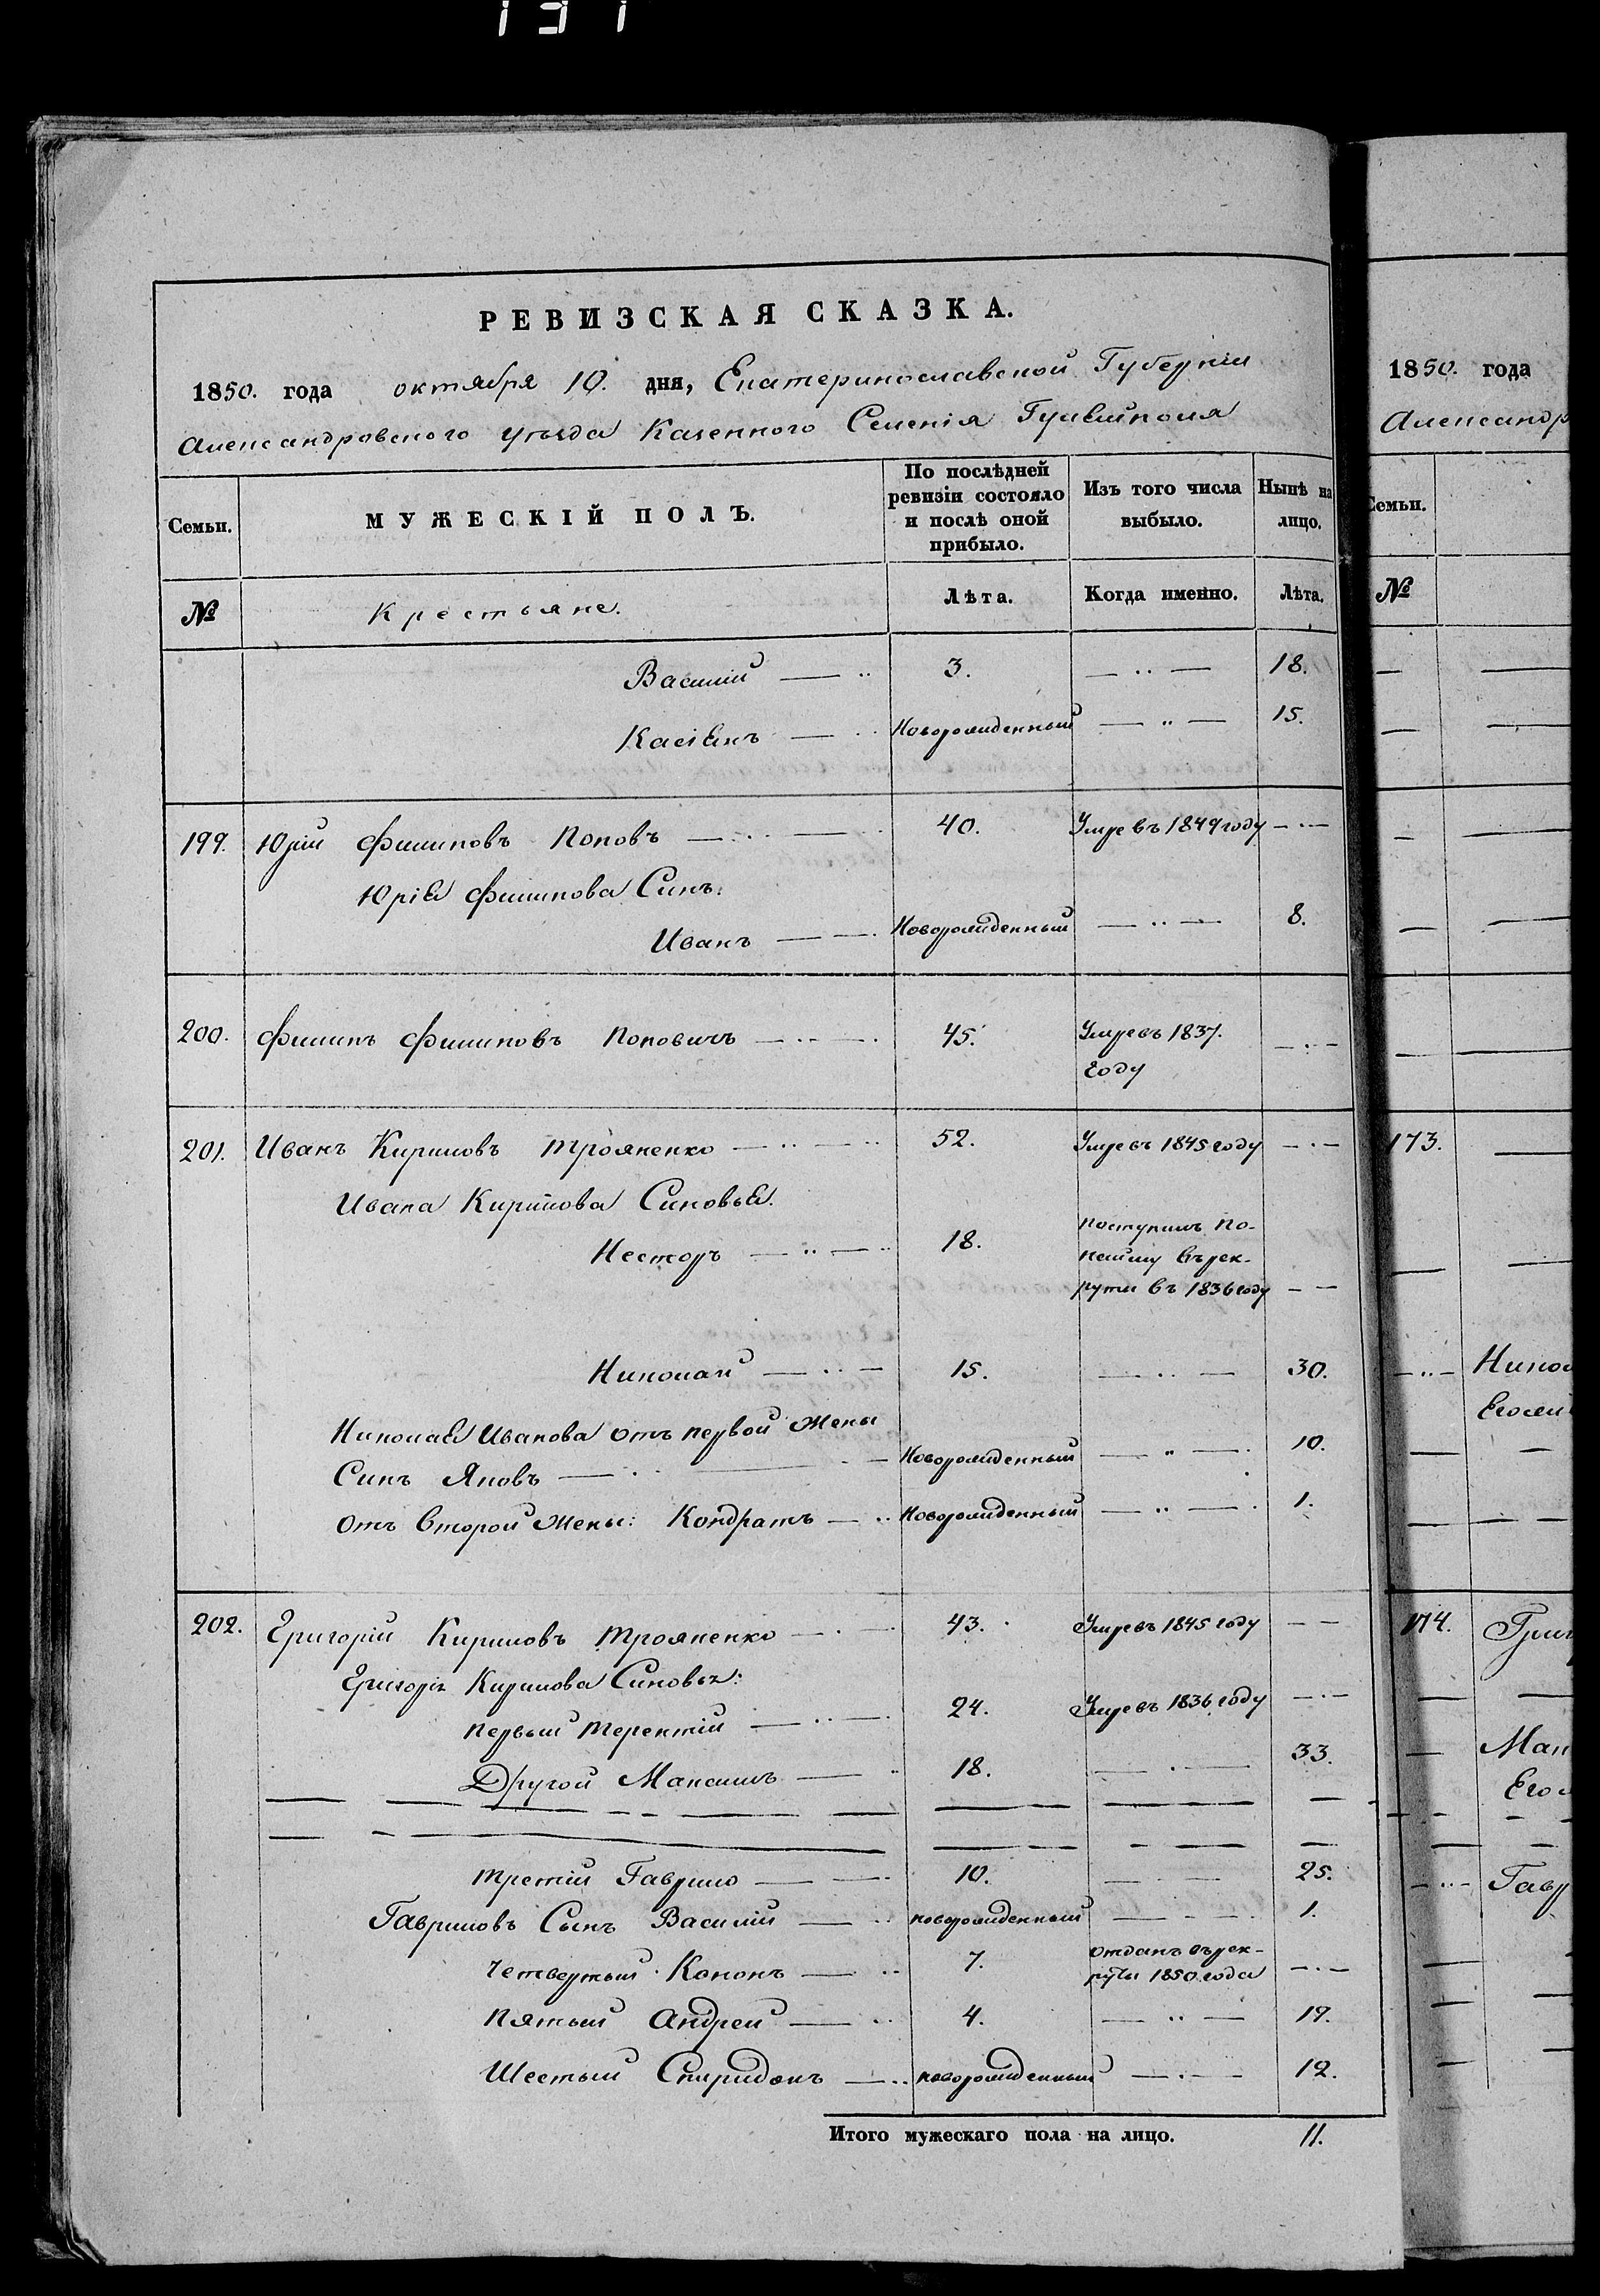 131
РЕВИЗСКАЯ СКАЗКА.
1850. года октября 10. дня, Екатеринославской Губерніи
Александровского уѣзда Казенного Селенія Гуляйполя
Семьи.
МУЖЕСКІЙ ПОЛЪ.
По послѣдней ревизіи состояло и послѣ оной прибыло.
Изъ того числа выбыло.
Нынѣ на лицо.
№ Крестьяне. Лѣта. Когда именно. Лѣта.
Василій 3. 18.
Касіянъ Новорожденный 15.
199. Юрій Филиповъ Поповъ 40. Умре въ 1849 году
Юрія Филипова Синъ:
Иванъ Новорожденный 8.
200. Филипъ Филиповъ Поповичъ 45. Умре въ 1837.
году
201. Иванъ Кириловъ Трояненко 52. Умре въ 1845 году
Ивана Кирилова Синовья.
Несторъ 18. поступилъ по-
найму въ рек-
рути въ 1836 году
Николай 15. 30.
Николая Иванова отъ первой Жены
Синъ Яковъ Новорожденный 10.
отъ Второй Жены: Кондратъ Новорожденный 1.
202. Григорій Кириловъ Трояненко 43. Умре въ 1845 году
Григорія Кирилова Синовья:
Первый Терентій 24. Умре въ 1836 году
Другой Максимъ 18. 33.
Третій Гаврило 10. 25.
Гавриловъ Сынъ Василій новорожденный 1.
Четвертый Кононъ 7. отданъ въ рек-
руты 1850 года
Пятый Андрей 4. 19.
Шестый Спиридонъ новорожденный 12.
Итого мужескаго пола на лицо. 11.
1850. года
Александр
Семьи.
№
173.
Никол
174.
Григ
Мак
Гавр